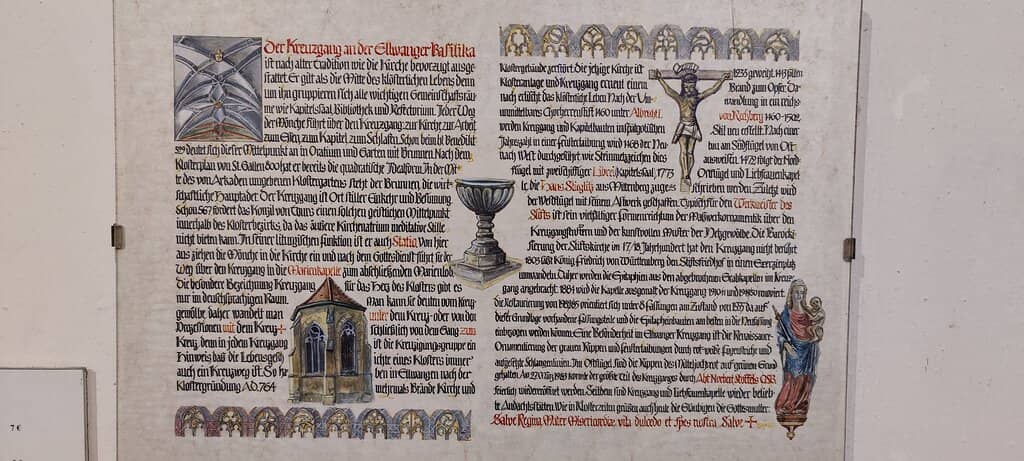 Der Kreuzgang an der Ellwanger Basilika
ist nach alter Tradition wie die Kirche bevorzugt ausge
stattet. Er gilt als die Mitte des klösterlichen Lebens denn
um ihn gruppieren sich alle wichtigen Gemeinschaftsräu
me wie Kapitelsaal, Bibliothek und Refektorium. Jeder Weg
der Mönche führt über den Kreuzgang: zur Kirche, zur Arbeit,
zum Essen, zum Kapitel, zum Schlafen. Schon beim hl. Benedikt
529 deutet sich dieser Mittelpunkt an in Oratium und Garten mit Brunnen. Nach dem
Klosterplan von St. Gallen 800 hat er bereits die quadratische Idealform. In der Mit
te des von Arkaden umgebenen Klostergartens steht der Brunnen, die wirt
schaftliche Hauptader. Der Kreuzgang ist Ort stiller Einkehr und Besinnung
Schon 567 fordert das Konzil von Tours einen solchen geistlichen Mittelpunkt
innerhalb des Klosterbezirks, da das äußere Kirchenatrium meditative Stille
nicht bieten kann. In seiner liturgischen Funktion ist er auch Statio. Von hier
aus ziehen die Mönche in die Kirche ein und nach dem Gottesdienst führt sie der
Weg über den Kreuzgang in die Marienkapelle zum abschließenden Marienlob.
Die besondere Bezeichnung Kreuzgang für das Herz des Klosters gibt es
nur im deutschsprachigen Raum. man kann sie deuten vom Kreuz-
gewölbe, daher wandelt man unter dem Kreuz- oder von den
Prozessionen mit dem Kreuz + schließlich von dem Gang zum
Kreuz, denn in jedem Kreuzgang ist die Kreuzigungsgruppe ein
Hinweis daß die Lebensgeschichte eines Klosters immer
auch ein Kreuzweg ist. So haben in Ellwangen nach der
Klostergründung A.D. 764 mehrmals Brände Kirche und
Klostergebäude zerstört. Die jetzige Kirche ist 1233 geweiht. 1443 fallen
Klosteranlage und Kreuzgang erneut einem Brand zum Opfer. Da
nach erlischt das klösterliche Leben. Nach der Umwandlung in ein reichs
unmittelbares Chorherrenstift 1460 unter Albrecht I. von Rechberg 1460-1502
werden Kreuzgang und Kapitelbauten in spätgotischen Stil neu erstellt. Nach einer
Jahreszahl in einer Fensterlaibung wird 1468 der Neubau am Südflügel von Ost
nach West durchgeführt wie Steinmetzzeichen dies ausweisen. 1472 folgt der Nord
flügel mit zweischiffiger Liberei, Kapitelsaal, 1473 Ostflügel und Liebfrauenkapel
le, die Hans Stieglitz aus Miltenberg zuge schrieben werden. Zuletzt wird
der Westflügel mit schönem Astwerk geschaffen. Typisch für den Werkmeister des
Stifts ist sein vielfältiger Formenreichtum der Maßwerkornamentik über den
Kreuzgangstufen und der kunstvollen Muster der Netzgewölbe. Die Barocki
sierung der Stiftskirche im 17./18. Jahrhundert hat den Kreuzgang nicht berührt
1803 läßt König Friedrich von Württemberg den Stiftsfriedhof in einen Exerzierplatz
umwandeln. Daher werden die Epitaphien aus den abgebrochenen Grabkapellen im Kreuz
gang angebracht. 1884 wird die Kapelle ausgemalt der Kreuzgang 1910 n und 1949/50 renoviert.
Die Restaurierung von 1981/85 orientiert sich unter 8 Fassungen am Zustand von 1557 da auf
dieser Grundlage vorhandene Fassungsteile und die Epitapheinbauten am besten in die Neufassung
einbezogen werden können. Eine Besonderheit im Ellwanger Kreuzgang ist die Renaissance-
Ornamentierung der grauen Rippen und Fensterlaibungen durch rot-weiße Fugenstriche und
aufgesetzte Schlangenlinien. Im Ostflügel sind die Rippen des Mitteljochs rot auf grünem Grund
gehalten. Am 22. Juni 1985 konnte der größte Teil des Kreuzganges durch Abt Norbert Stoffels OSB
feierlich wiedereröffnet werden. Seitdem sind Kreuzgang und Liebfrauenkapelle wieder belieb
te Andachtsstätten. Wie in Klosterzeiten grüßen auch heute die Gläubigen die Gottesmutter:
Salve Regina, Mater Misericordiae, vita dulcedo et spes nostra, Salve +
7 €